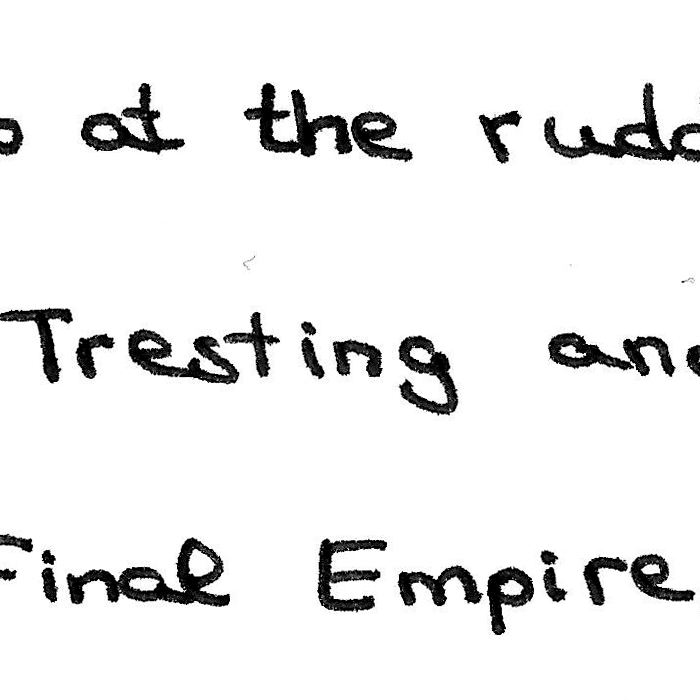 at the
Tresting
Final Empire